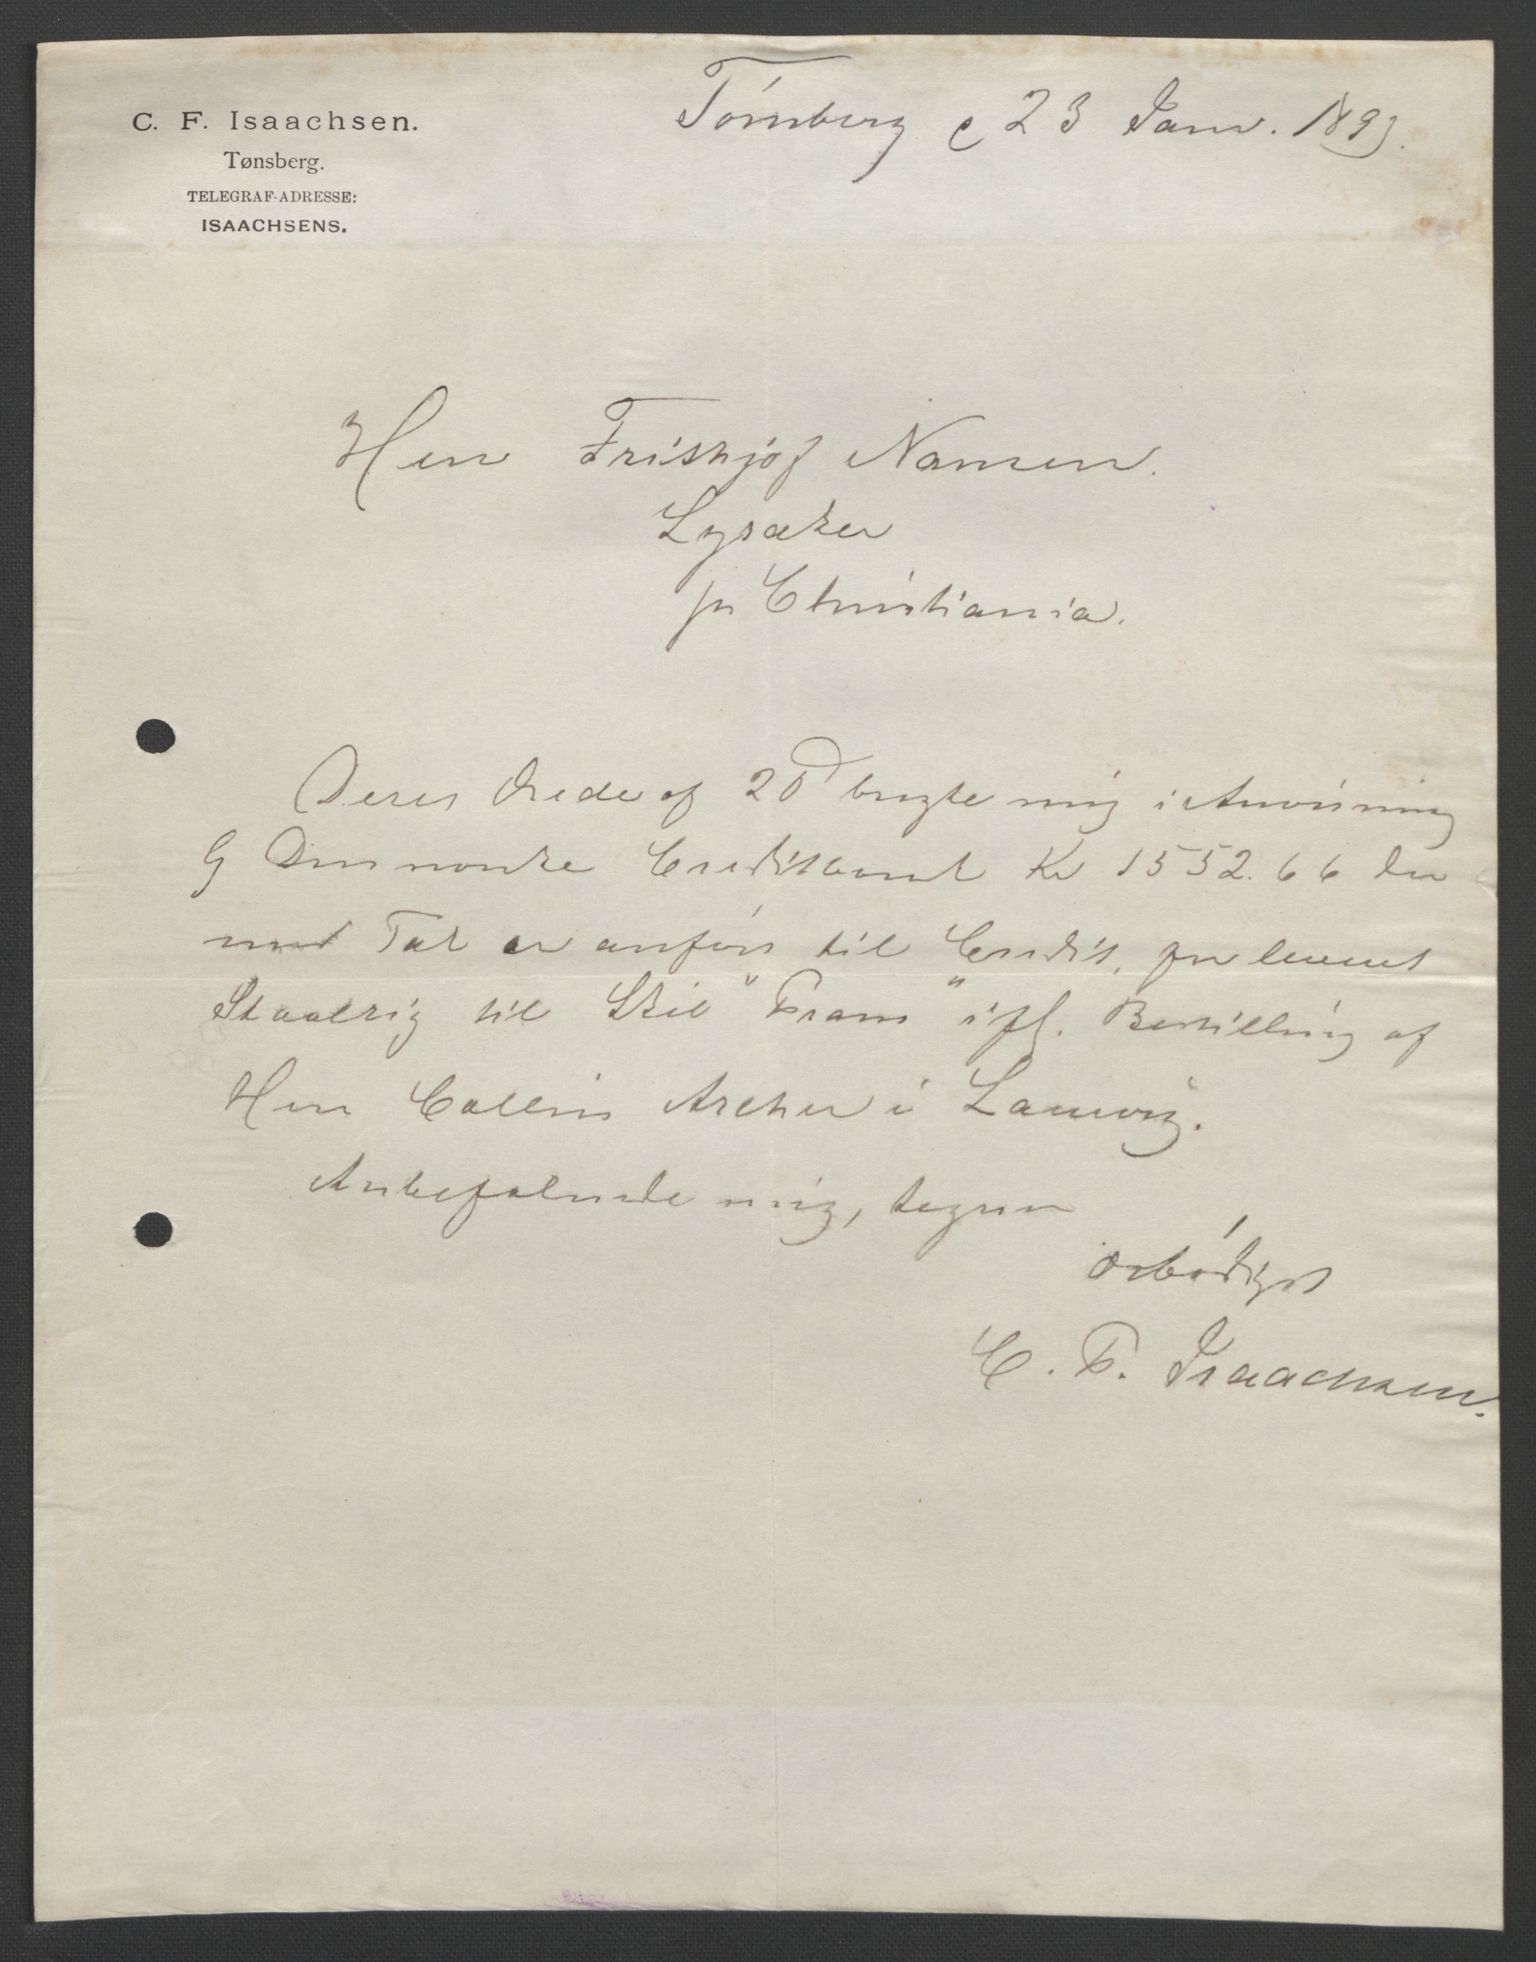 C. F. Isaachsen.
Tønsberg.
TELEGRAF-ADRESSE:
ISAACHSENS.
Tønsberg d 23 Janv. 1893.
Herr Frithjof Nansen.
Lysaker
pr Christiania.
Deres Ærede af 20 bragte mig i Anvisning
Den norske Creditbank Kr 1552.66 der
med Tak er anført til Credit, for leveret
Staalrig til Skib "Fram" ifl. Bestilling af
Herr Collin Archer i Laurvig.
Anbefalende mig, tegner
ærbødigst
C. F. Isaachsen.